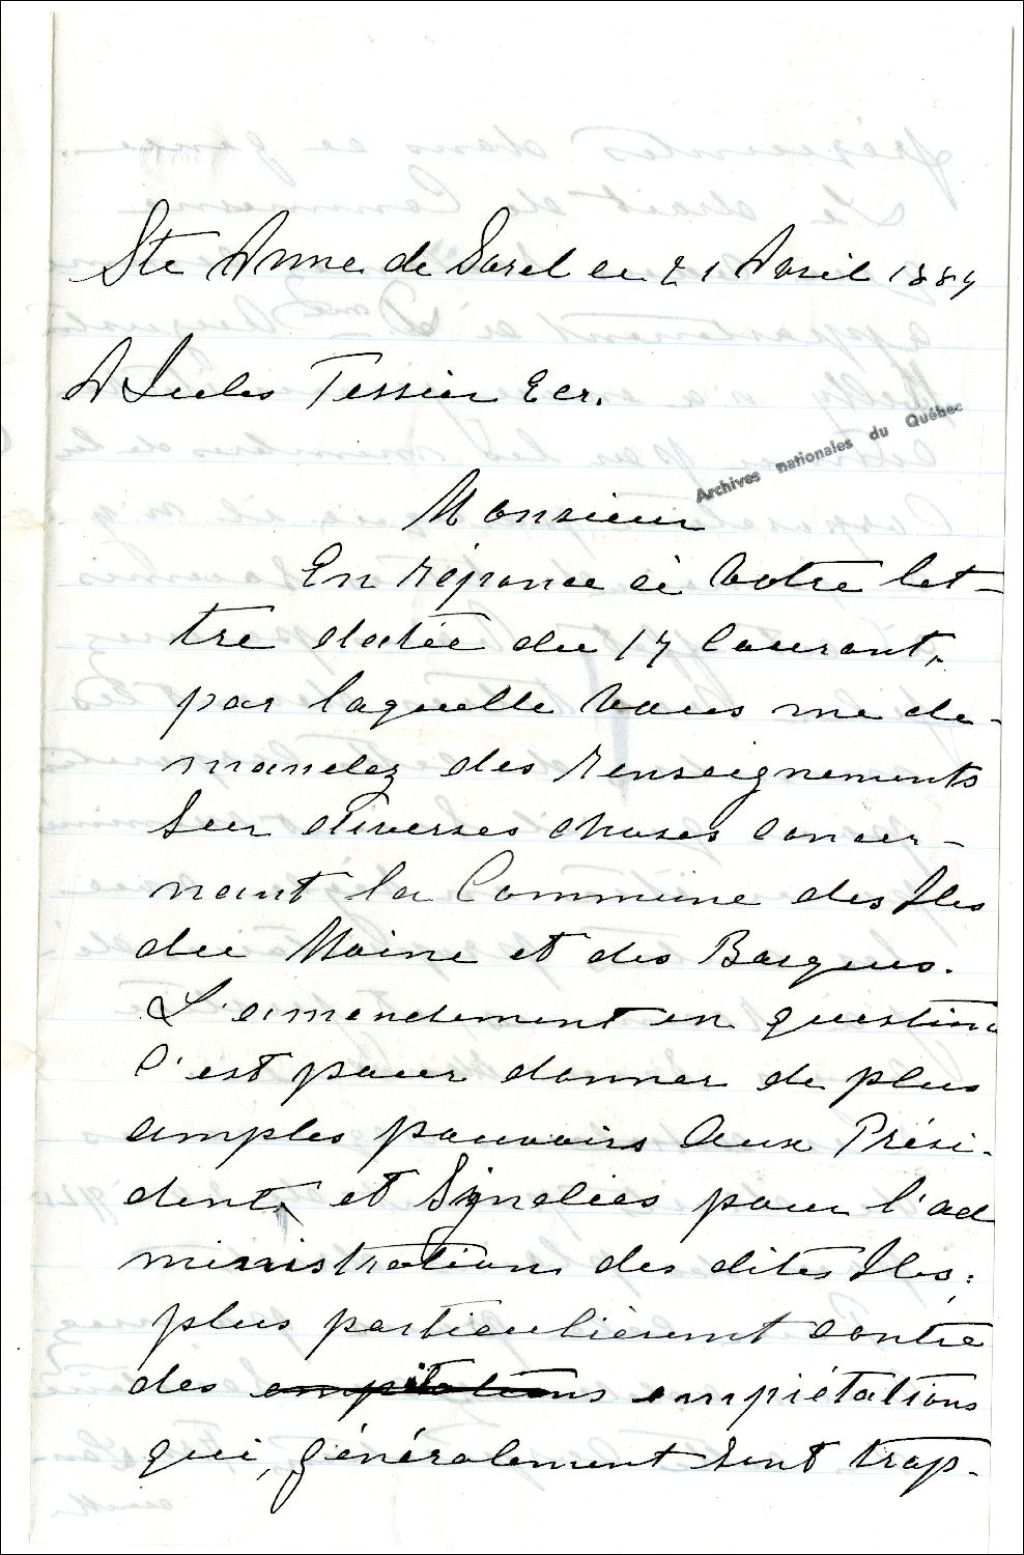 Ste Anne de Sorel ce 21 Avril 1889
A Jules Tessier Ecr.
Archives nationales du Québec
Monsieur
En réponse à votre let-
tre datée du 17 courant,
par laquelle vous me de-
mandez des renseignements
sur diverses choses concer-
nant la Commune des Iles
du Moine et des Barques.
L'amendement en question
c'est pour donner de plus
amples pouvoirs aux Prési-
dent, et Syndics pour l'ad
ministration des dites Iles;
plus particulièrement contre
des empitations empiétations
qui, généralement sont trop-